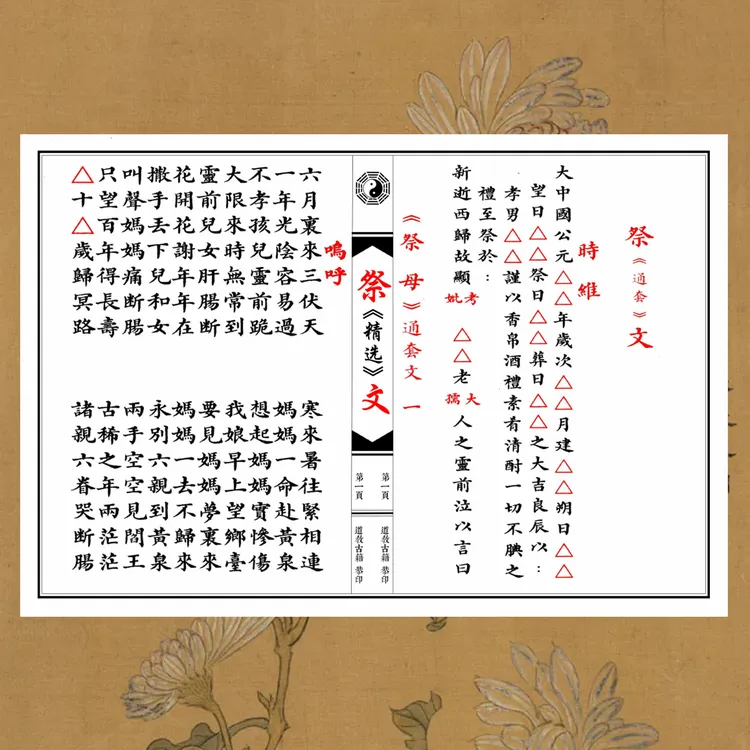 祭《通套》文
時維
大中國公元△△年歲次△△月建△△朔日△△
望日△△祭日△△葬日△△之大吉良辰以：
孝男△△謹以香帛酒禮素肴清酎一切不腆之
禮至祭於：
新逝西歸故顯考妣△△老大孺人之靈前泣以言曰
《祭母》通套文一
祭《精选》文
第一頁
道教古籍 恭印
第一頁
道教古籍 恭印
嗚呼
六月裏來三伏天 寒來暑往緊相連
一年光陰容易過 媽媽一命赴黃泉
不孝孩兒靈前跪 想起媽媽實慘傷
大限來時無常到 我娘早上望鄉臺
靈前兒女肝腸断 要見媽媽夢裏來
花開花謝年年在 媽媽一去不歸來
撒手丟下兒和女 永別六親到黃泉
叫聲媽媽痛断腸 兩手空空見閻王
只望百年得長壽 古稀之年兩茫茫
△十△歲歸冥路 諸親六眷哭断腸